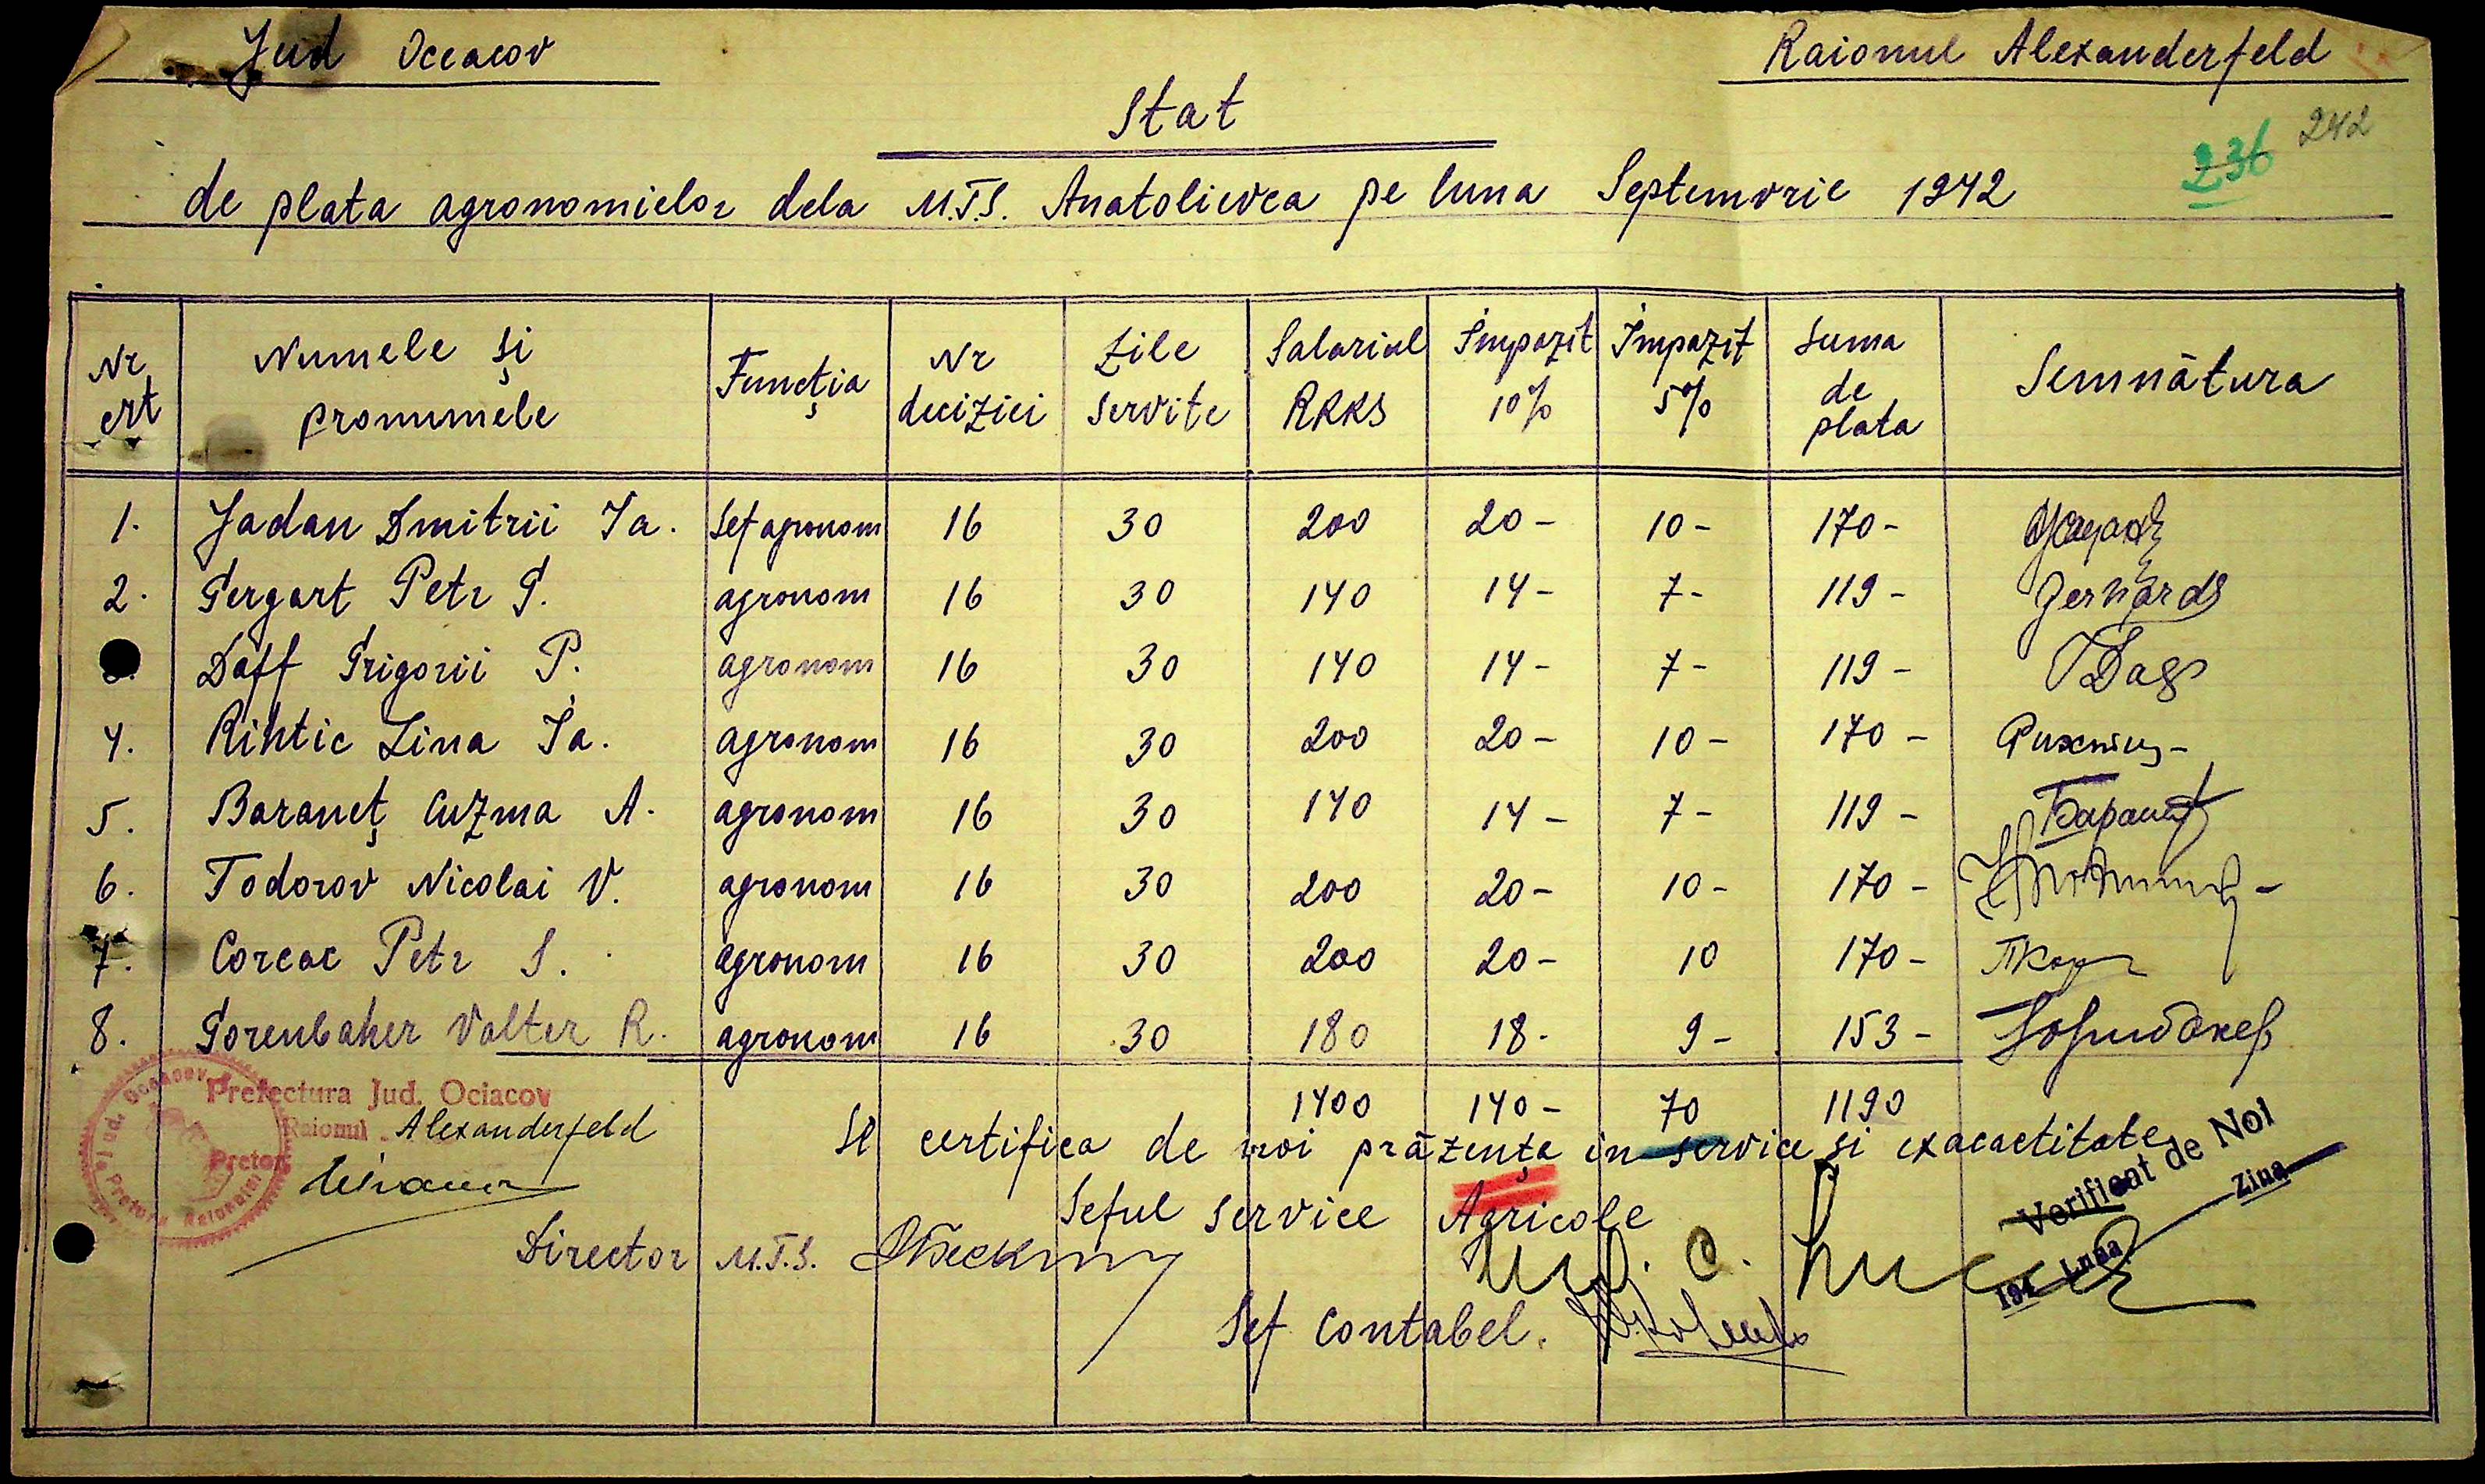 Jud Occacov
Raionul Alexanderfeld
Stat
236 242
de plata agronomielor dela M.T.S. Anatolievca pe luna Septemvrie 1942
Nr crt | Numele și pronumele | Funcția | Nr deciziei | Zile servite | Salariul RKKS | Impozit 10% | Impozit 5% | Suma de plata | Semnătura
1. Jadan Dmitrii Ia. Șef agronom 16 30 200 20- 10- 170-
2. Gergart Petr G. agronom 16 30 140 14- 7- 119- Gerhards
3. Daff Grigorii P. agronom 16 30 140 14- 7- 119- Г Дафф
4. Rihtic Zina Ia. agronom 16 30 200 20- 10- 170- Рихтиц-
5. Baraneț Cuzma A. agronom 16 30 140 14- 7- 119- Баранец
6. Todorov Nicolai V. agronom 16 30 200 20- 10- 170-
7. Corcac Petr S. agronom 16 30 200 20- 10 170-
8. Gorenbaher Valter R. agronom 16 30 180 18- 9- 153-
1400 140- 70 1190
Prefectura Jud. Ociacov
Raionul Alexanderfeld
Pretor
Se certifica de noi prăzența in service si exacactitate
Verificat de Noi
194 Luna Ziua
Seful service Agricole
Director M.T.S.
Sef Contabel.